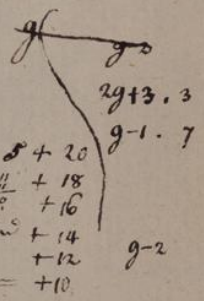 g
g 3
2g+3 . 3
g-1 . 7
5 + 20
+ 18
+ 16
+ 14
g-2
+ 12
+ 10